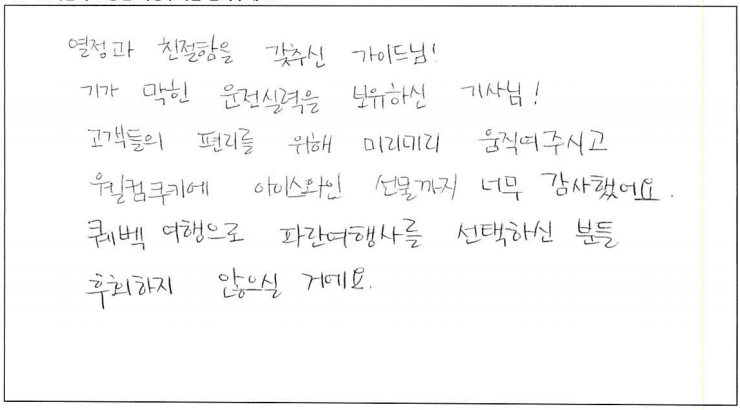 열정과 친절함을 갖추신 가이드님!
기가 막힌 운전실력을 보유하신 기사님!
고객들의 편리를 위해 미리미리 움직여주시고
웰컴쿠키에 아이스와인 선물까지 너무 감사했어요.
퀘벡 여행으로 파란여행사를 선택하신 분들
후회하지 않으실 거에요.